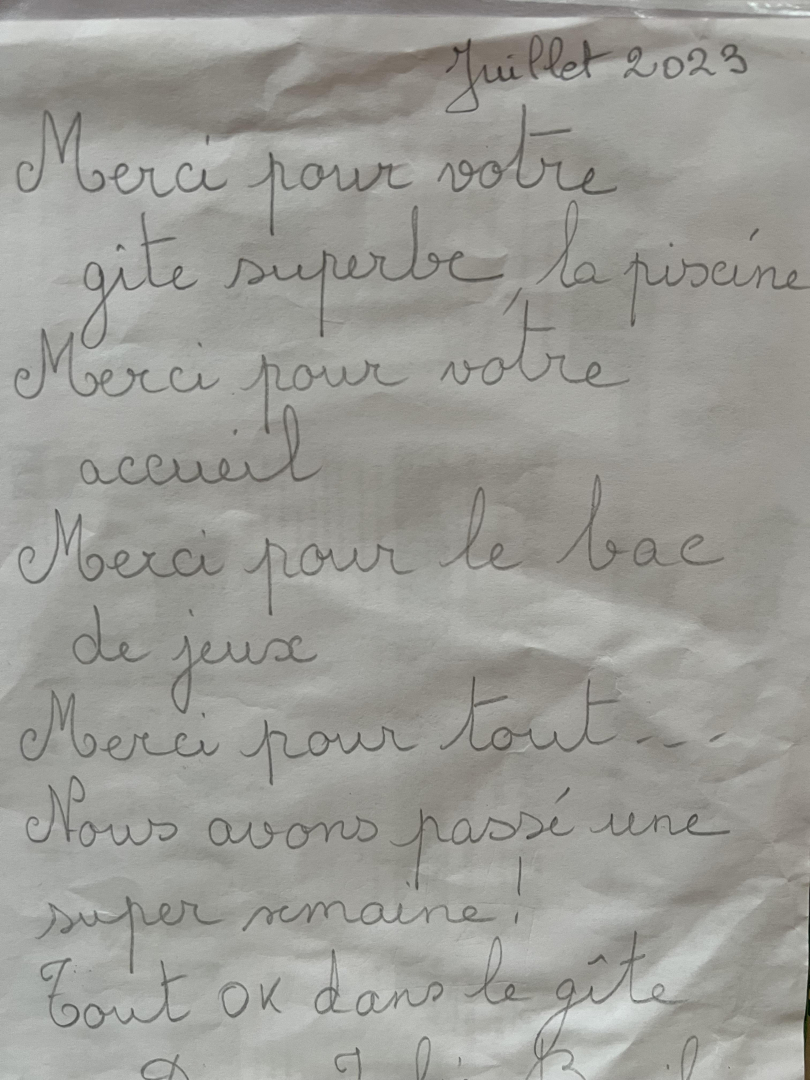 Juillet 2023
Merci pour votre
gîte superbe, la piscine
Merci pour votre
accueil
Merci pour le bac
de jeux
Merci pour tout...
Nous avons passé une
super semaine!
Tout OK dans le gîte